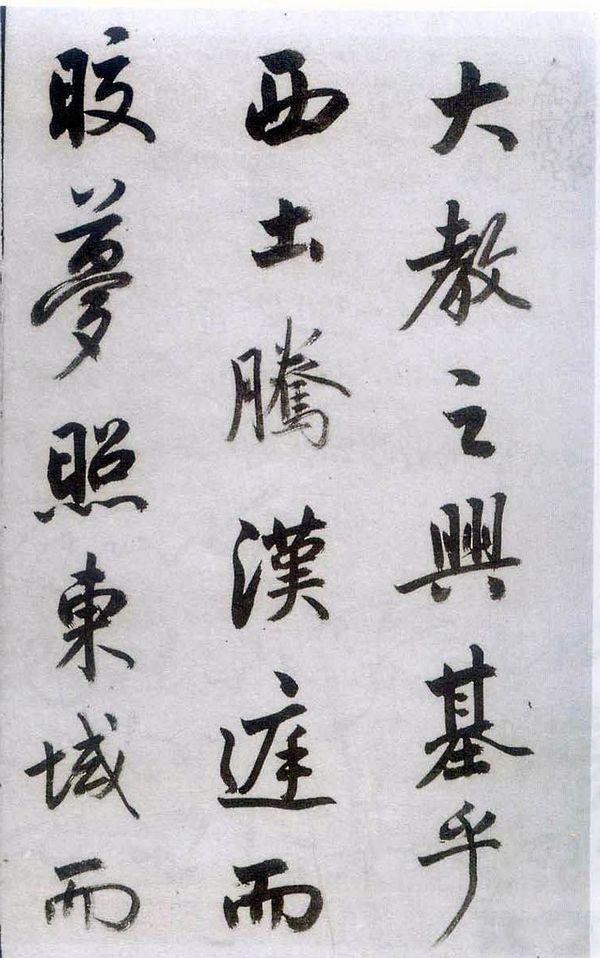 大教之興基乎
西土騰漢庭而
晈夢照東域而